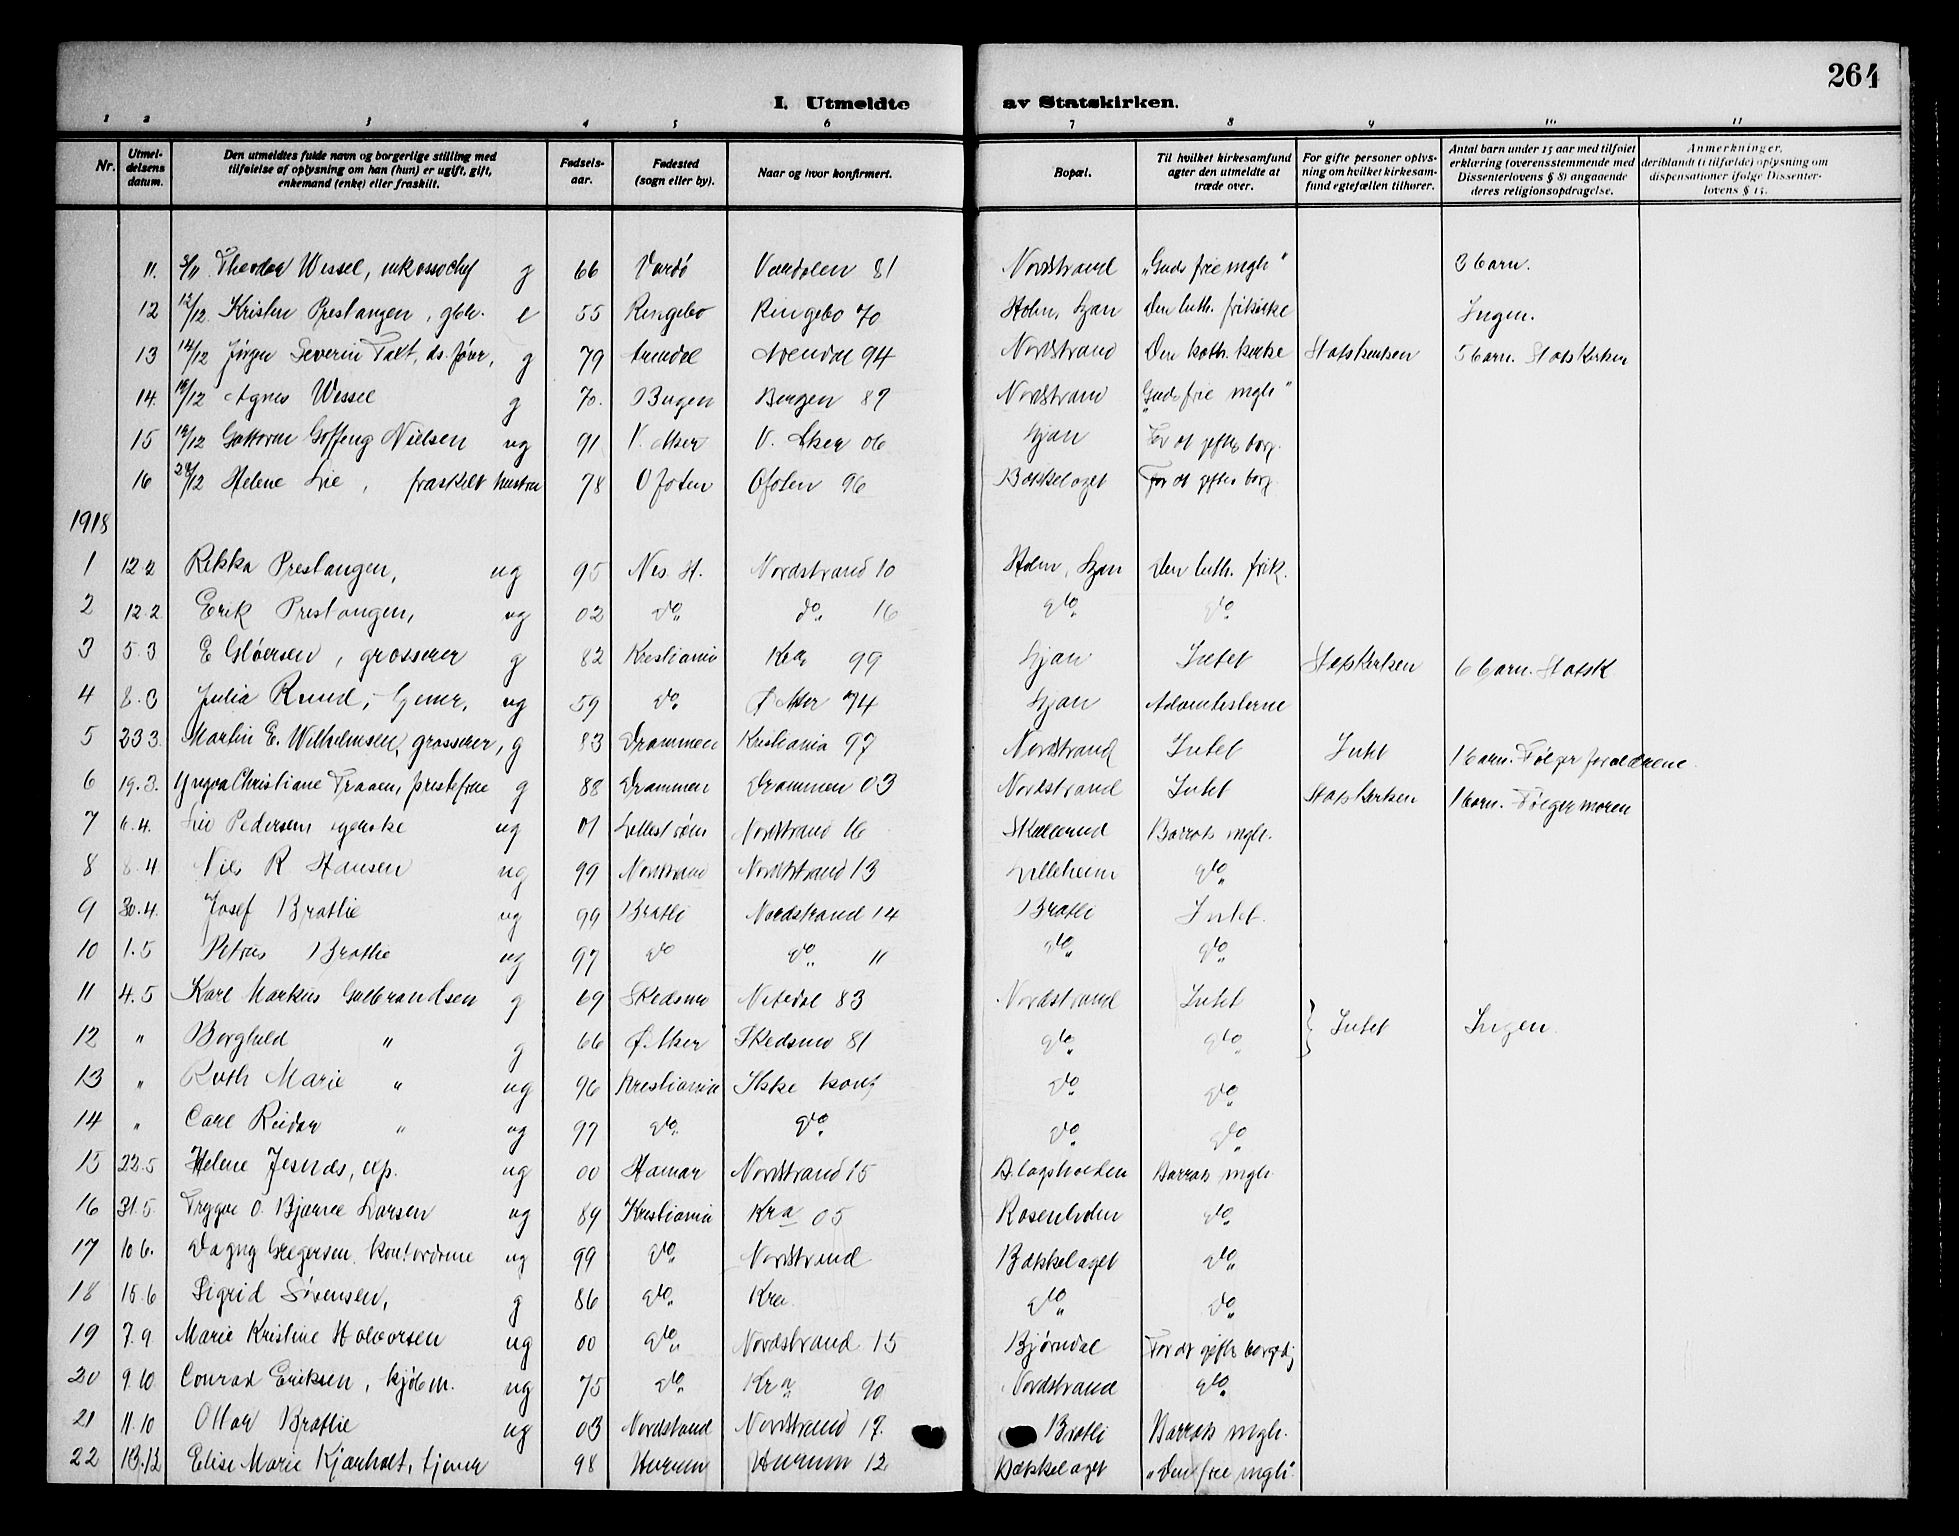 264
I. Utmeldte av Statskirken.
1 2 3 4 5 6 7 8 9 10 11
Nr. | Utmeldelsens datum. | Den utmeldtes fulde navn og borgerlige stilling med tilføielse af oplysning om han (hun) er ugift, gift, enkemand (enke) eller fraskilt. | Fødselsaar. | Fødested (sogn eller by). | Naar og hvor konfirmert. | Bopæl. | Til hvilket kirkesamfund agter den utmeldte at træde over. | For gifte personer oplysning om hvilket kirkesamfund egtefællen tilhører. | Antal barn under 15 aar med tilføiet erklæring (overensstemmende med Dissenterlovens § 8) angaaende deres religionsopdragelse. | Anmerkninger, deriblandt (i tilfælde) oplysning om dispensationer ifølge Dissenterlovens § 15.
11. Theodor Wessel, inkassochef g 66 Vardø Værdalen 81 Nordstrand "Guds frie mgh" 3 barn.
12 12/12 Kristen Prestangen, gbr. e 55 Ringebo Ringebo 70 Holm, Ljan Den luth. frikirke Ingen.
13 14/12 Jørgen Severin g 79 Arendal Arendal 94 Nordstrand Den kath. kirke Statskirken 5 barn. Statskirken
14. /12 Agnes Wessel g 70. Bergen Bergen 87 Nordstrand "Guds frie mgh"
15 /12 Nielsen ug 91 V. Aker V. Aker 06 Ljan For at giftes borg.
16 /12 Helene Lie, fraskilt hustru 78 Ofoten Ofoten 96 Bækkelaget For at giftes borg.
1918
1 12.2 Rikka Prestangen, ug 95 Nes H. Nordstrand 10 Holm, Ljan Den luth. frik.
2 12.2 Erik Prestangen, ug 02 do do 16 do do
3 5.3 E Gløersen, grosserer g 82 Kristiania Kra 99 Ljan Intet Statskirken 6 barn. Statsk
4 8.3 Julia Ruud, tjener, ug 59 do Ø Aker 74 Ljan Adventisterne
5 23 3. Martin E. Wilhelmsen, grosserer, g 83 Drammen Kristiania 97 Nordstrand Intet Intet 1 barn. Følger forældrene.
6 19.3. Yngva Christiane Traaen, prestefrue g 88 Drammen Drammen 03 Nordstrand Intet Statskirken 1 barn. Følger moren
7 6.4. Pedersen, ug 01 Lillestrøm Nordstrand 16 Barrats mgh.
8 8.4 Nils R Hansen ug 99 Nordstrand Nordstrand 13 Lilleheim do
9 30.4. Josef Bratlie ug 99 Bratli Nordstrand 14 Bratli Intet.
10 1.5 Petrus Bratlie ug 97 do do 11 do do
11 4.5 Karl Markus Gulbrandsen g 69 Skedsmo Nitedal 83 Nordstrand Intet
12 " Borghild " g 66 Ø. Aker Skedsmo 81 do do } Intet Ingen.
13 " Ruth Marie " ug 96 Kristiania Ikke konf do do
14 " Carl Reidar " ug 97 do do do do
15 22.5 Helene Jesnæs, exp. ug 00 Hamar Nordstrand 15 Barrats mgh
16 31.5. Trygve O. Bjarne Larsen ug 89 Kristiania Kra 05 Rosenholm do
17 10 6. Dagny Gregersen. kontordame ug 99 do Nordstrand Bækkelaget do
18 15.6 Sigrid Sørensen, g 86 do Kra. do do
19 7.9 Marie Kristine Halvorsen ug 00 do Nordstrand 15 Bjørndal For at giftes borgelig
20 9.10 Conrad Eriksen, kjøbm. ug 75 do Kra 90 Nordstrand do
21 11.10 Ottar Bratlie ug 03 Nordstrand Nordstrand 17. Bratli Barrats mgh.
22 13.12 Elise Marie Kjærholt, tjener 98 Hurum Hurum 12 Bækkelaget "Den frie mgh".